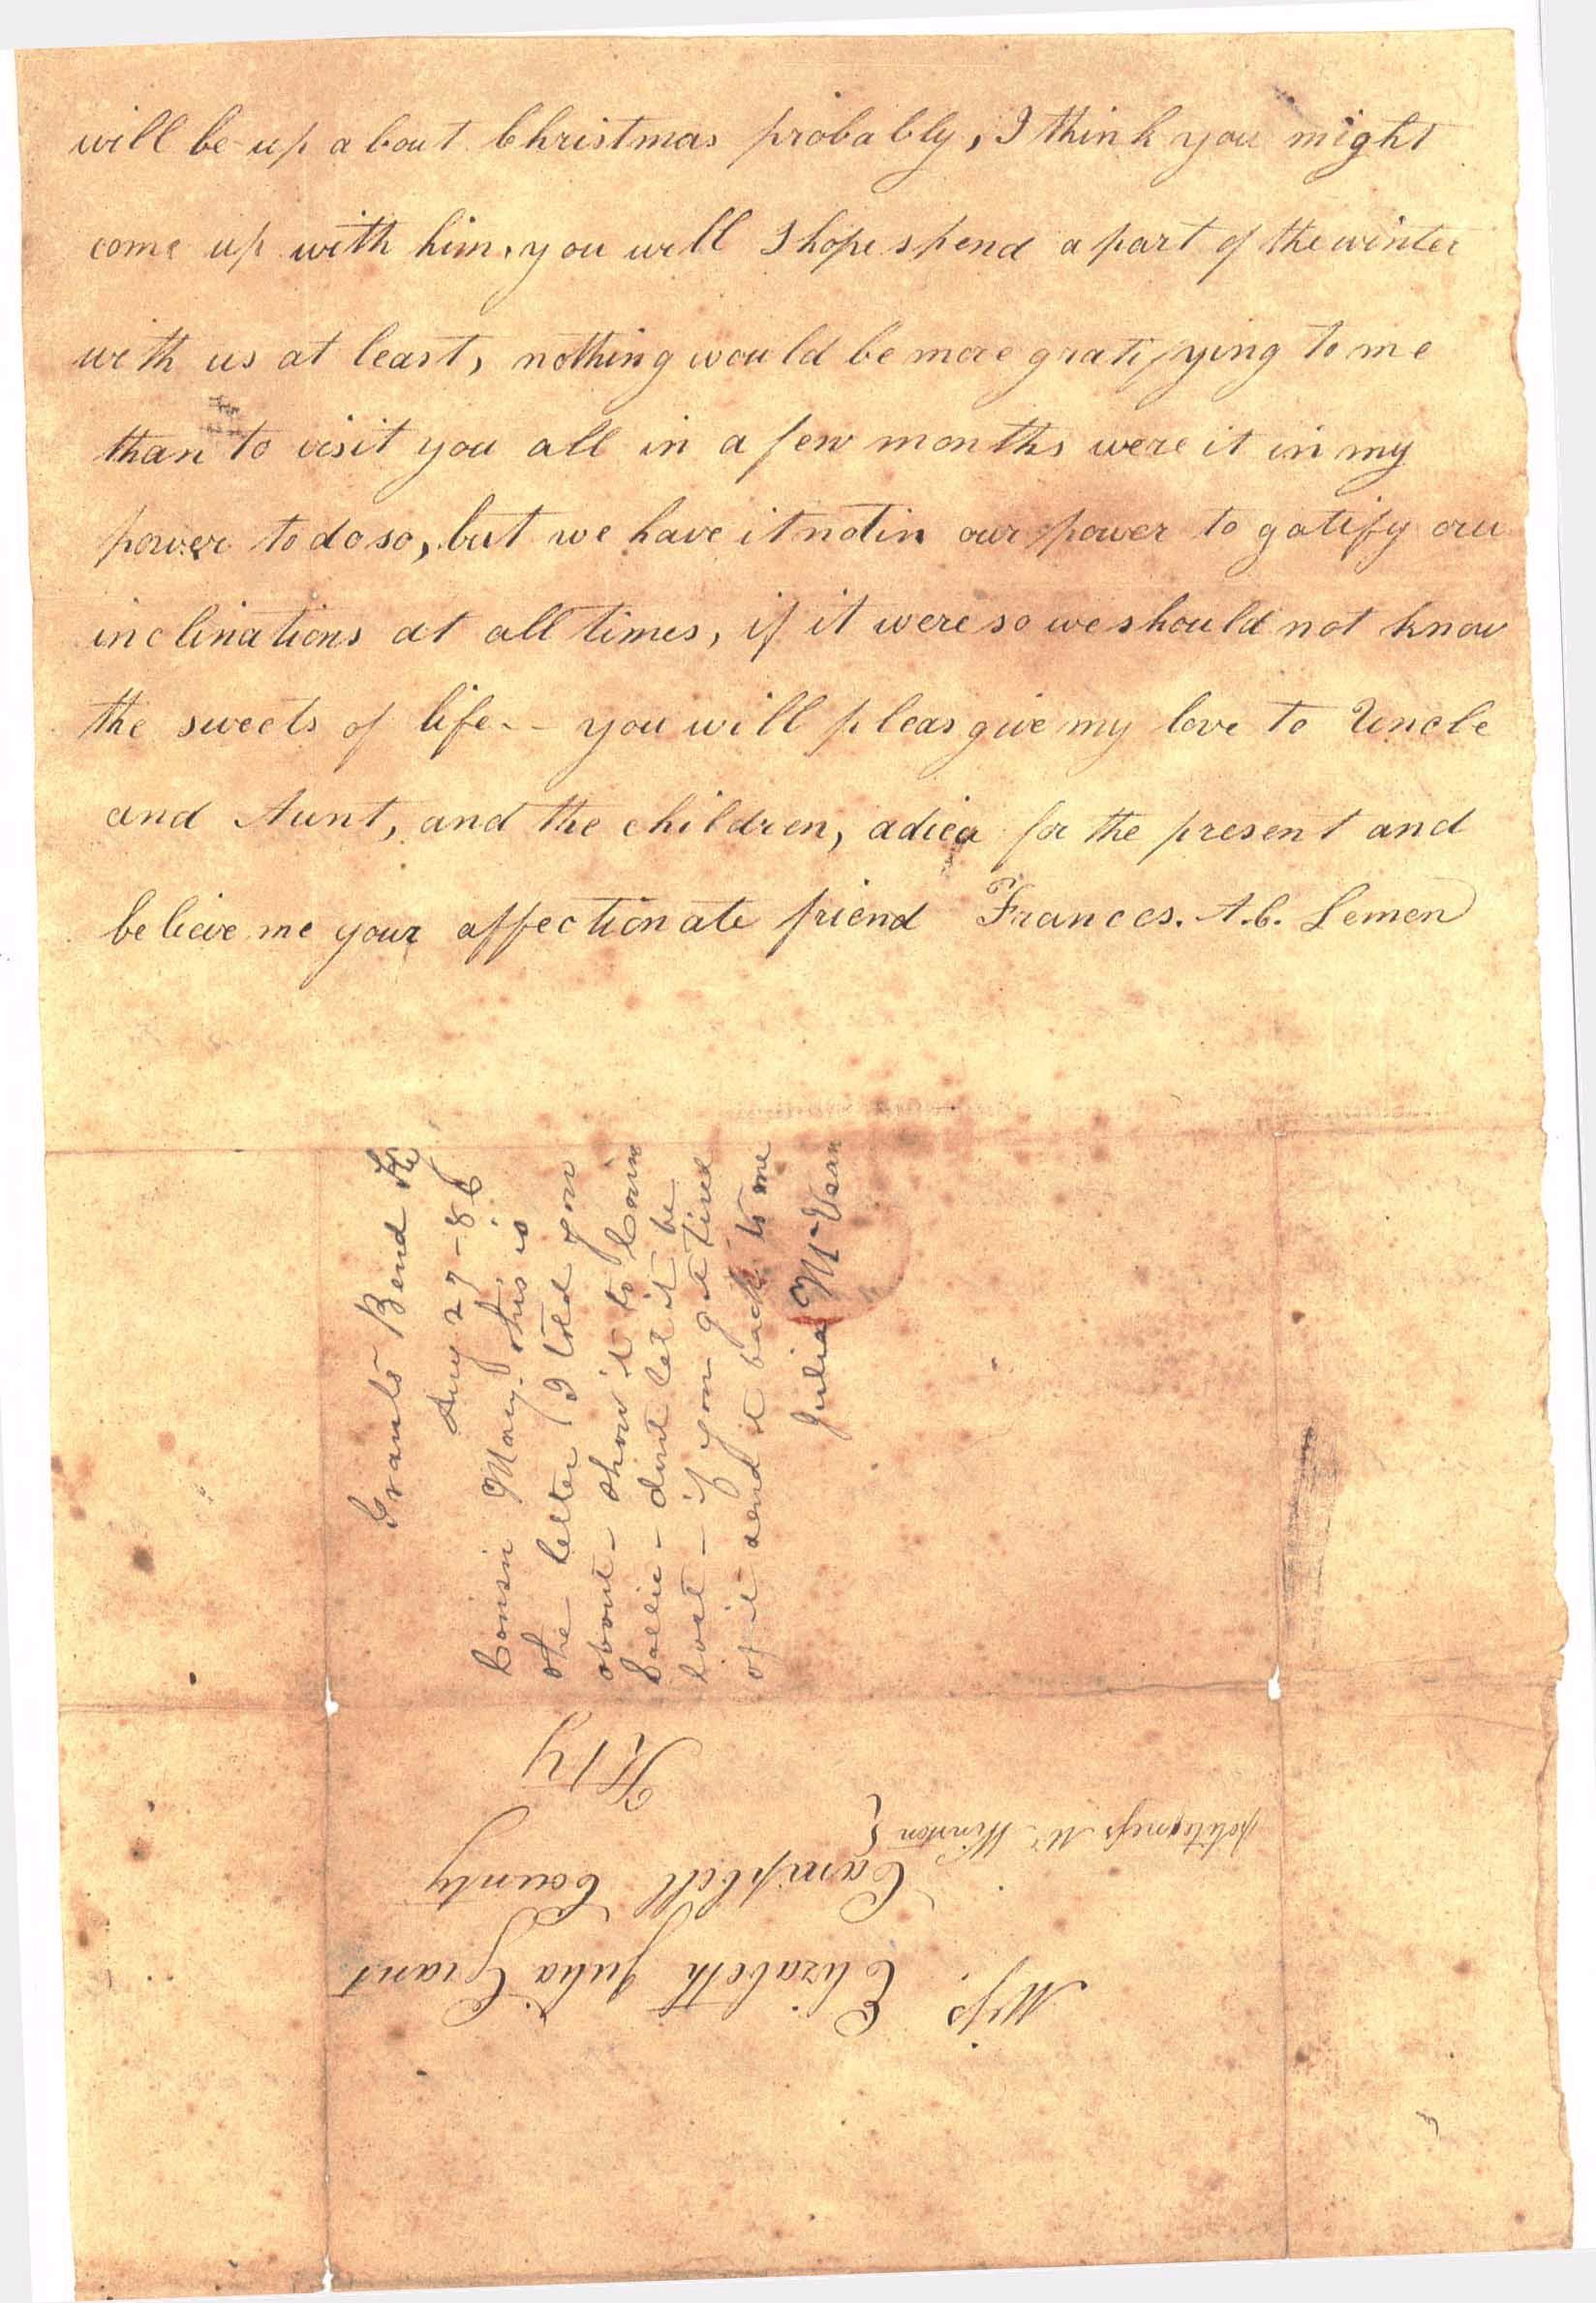 will be up about Christmas probably, I think you might
come up with him, you will I hope spend a part of the winter
with us at least, nothing would be more gratifying to me
than to visit you all in a few months were it in my
power to do so, but we have it not in our power to gatify our
inclinations at all times, if it were so we should not know
the sweets of life -- you will pleas give my love to Uncle
and Aunt, and the children, adieu for the present and
believe me your affectionate friend Frances. A.C. Lemen
Grants Bend Ky
Aug 27-86
Cousin Mary- this is
the letter I told you
about- show it to Cousin
Sallie - dont let it be
lost - if you get tired
of it send it back to me
Julia McVean
Miss. Elizabeth Julia Grant
Campbell County
Kty
politeness Mr Winston